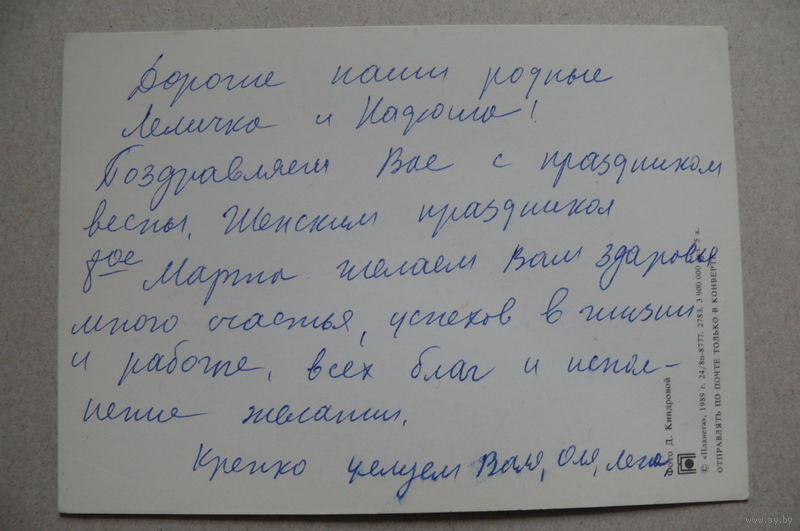 Дорогие наши родные
Лёличка и Надюша!
Поздравляем Вас с праздником
весны, Женским праздником
8ое Марта желаем Вам здоровье
много счастья, успехов в жизни
и работе, всех благ и испол-
нение желании.
Крепко целуем Валя, Оля, Лена
Фото Д. Киндровой
© «Планета», 1989 г. 24/8п-8777. 2783. 3 900 000 5 к.
ОТПРАВЛЯТЬ ПО ПОЧТЕ ТОЛЬКО В КОНВЕРТЕ
www.ay.by